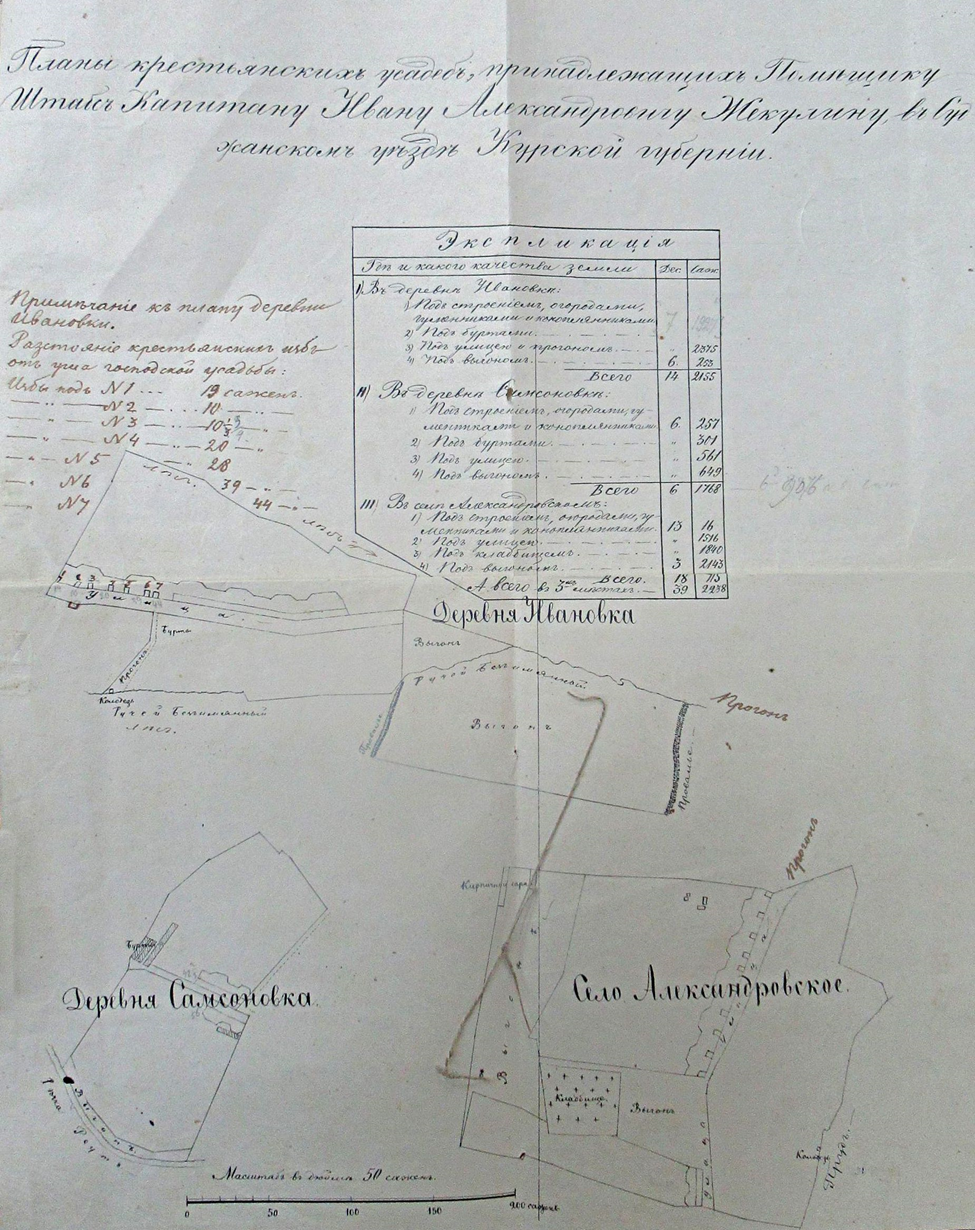 Планы крестьянскихъ усадебъ, принадлежащихъ Помѣщику
Штабсъ Капитану Ивану Александровичу Жекулину, въ Суд
жанскомъ уѣздѣ Курской губерніи.
Экспликація
Гдѣ и какого качества земли
Дес.
Саж.
I) Въ деревнѣ Ивановкѣ:
1) Подъ строеніемъ, огородами,
гуменниками и конопляниками
7
2) Подъ буртами.
3) Подъ улицею и прогономъ.
„ 2375
4) Подъ выгономъ.
6. 253
Всего 14 2155
II) Въ деревнѣ Самсоновкѣ:
1) Подъ строеніемъ, огородами, гу-
менниками и конопляниками.
6. 257
2) Подъ буртами.
„ 301
3) Подъ улицею.
„ 561
4) Подъ выгономъ.
„ 649
Всего 6 1768
III) Въ селѣ Александровскомъ:
1) Подъ строеніемъ, огородами, гу-
менниками и конопляниками.
13 16
2) Подъ улицею.
„ 1516
3) Подъ кладбищемъ.
„ 1840
4) Подъ выгономъ.
3 2143
Всего. 18 715
А всего въ 3хъ мѣстахъ. 39 2238
Примѣчаніе къ плану деревни
Ивановки.
Разстояніе крестьянскихъ избъ
отъ угла господской усадьбы:
Избы подъ N 1 19 сажень.
N 2 10
N 3 10
N 4 20
N 5 28
N 6 39
N 7 44
лѣсъ.
лѣсъ
Деревня Ивановка
Улица.
Бурты
Прогонъ
Колодезь
Ручей Безъимянный
лѣсъ.
Выгонъ
Ручей Безъимянный
Выгонъ
Провалье
Прогонъ
Провалье
Прогонъ
Деревня Самсоновка.
Бурты
Выгонъ
Рѣчка
Село Александровское.
Кирпичный сарай
Выгонъ
Улица
Кладбище
Выгонъ
Улица
Прудъ.
Масштабъ въ дюймѣ 50 сажень.
0 50 100 150 200 сажень